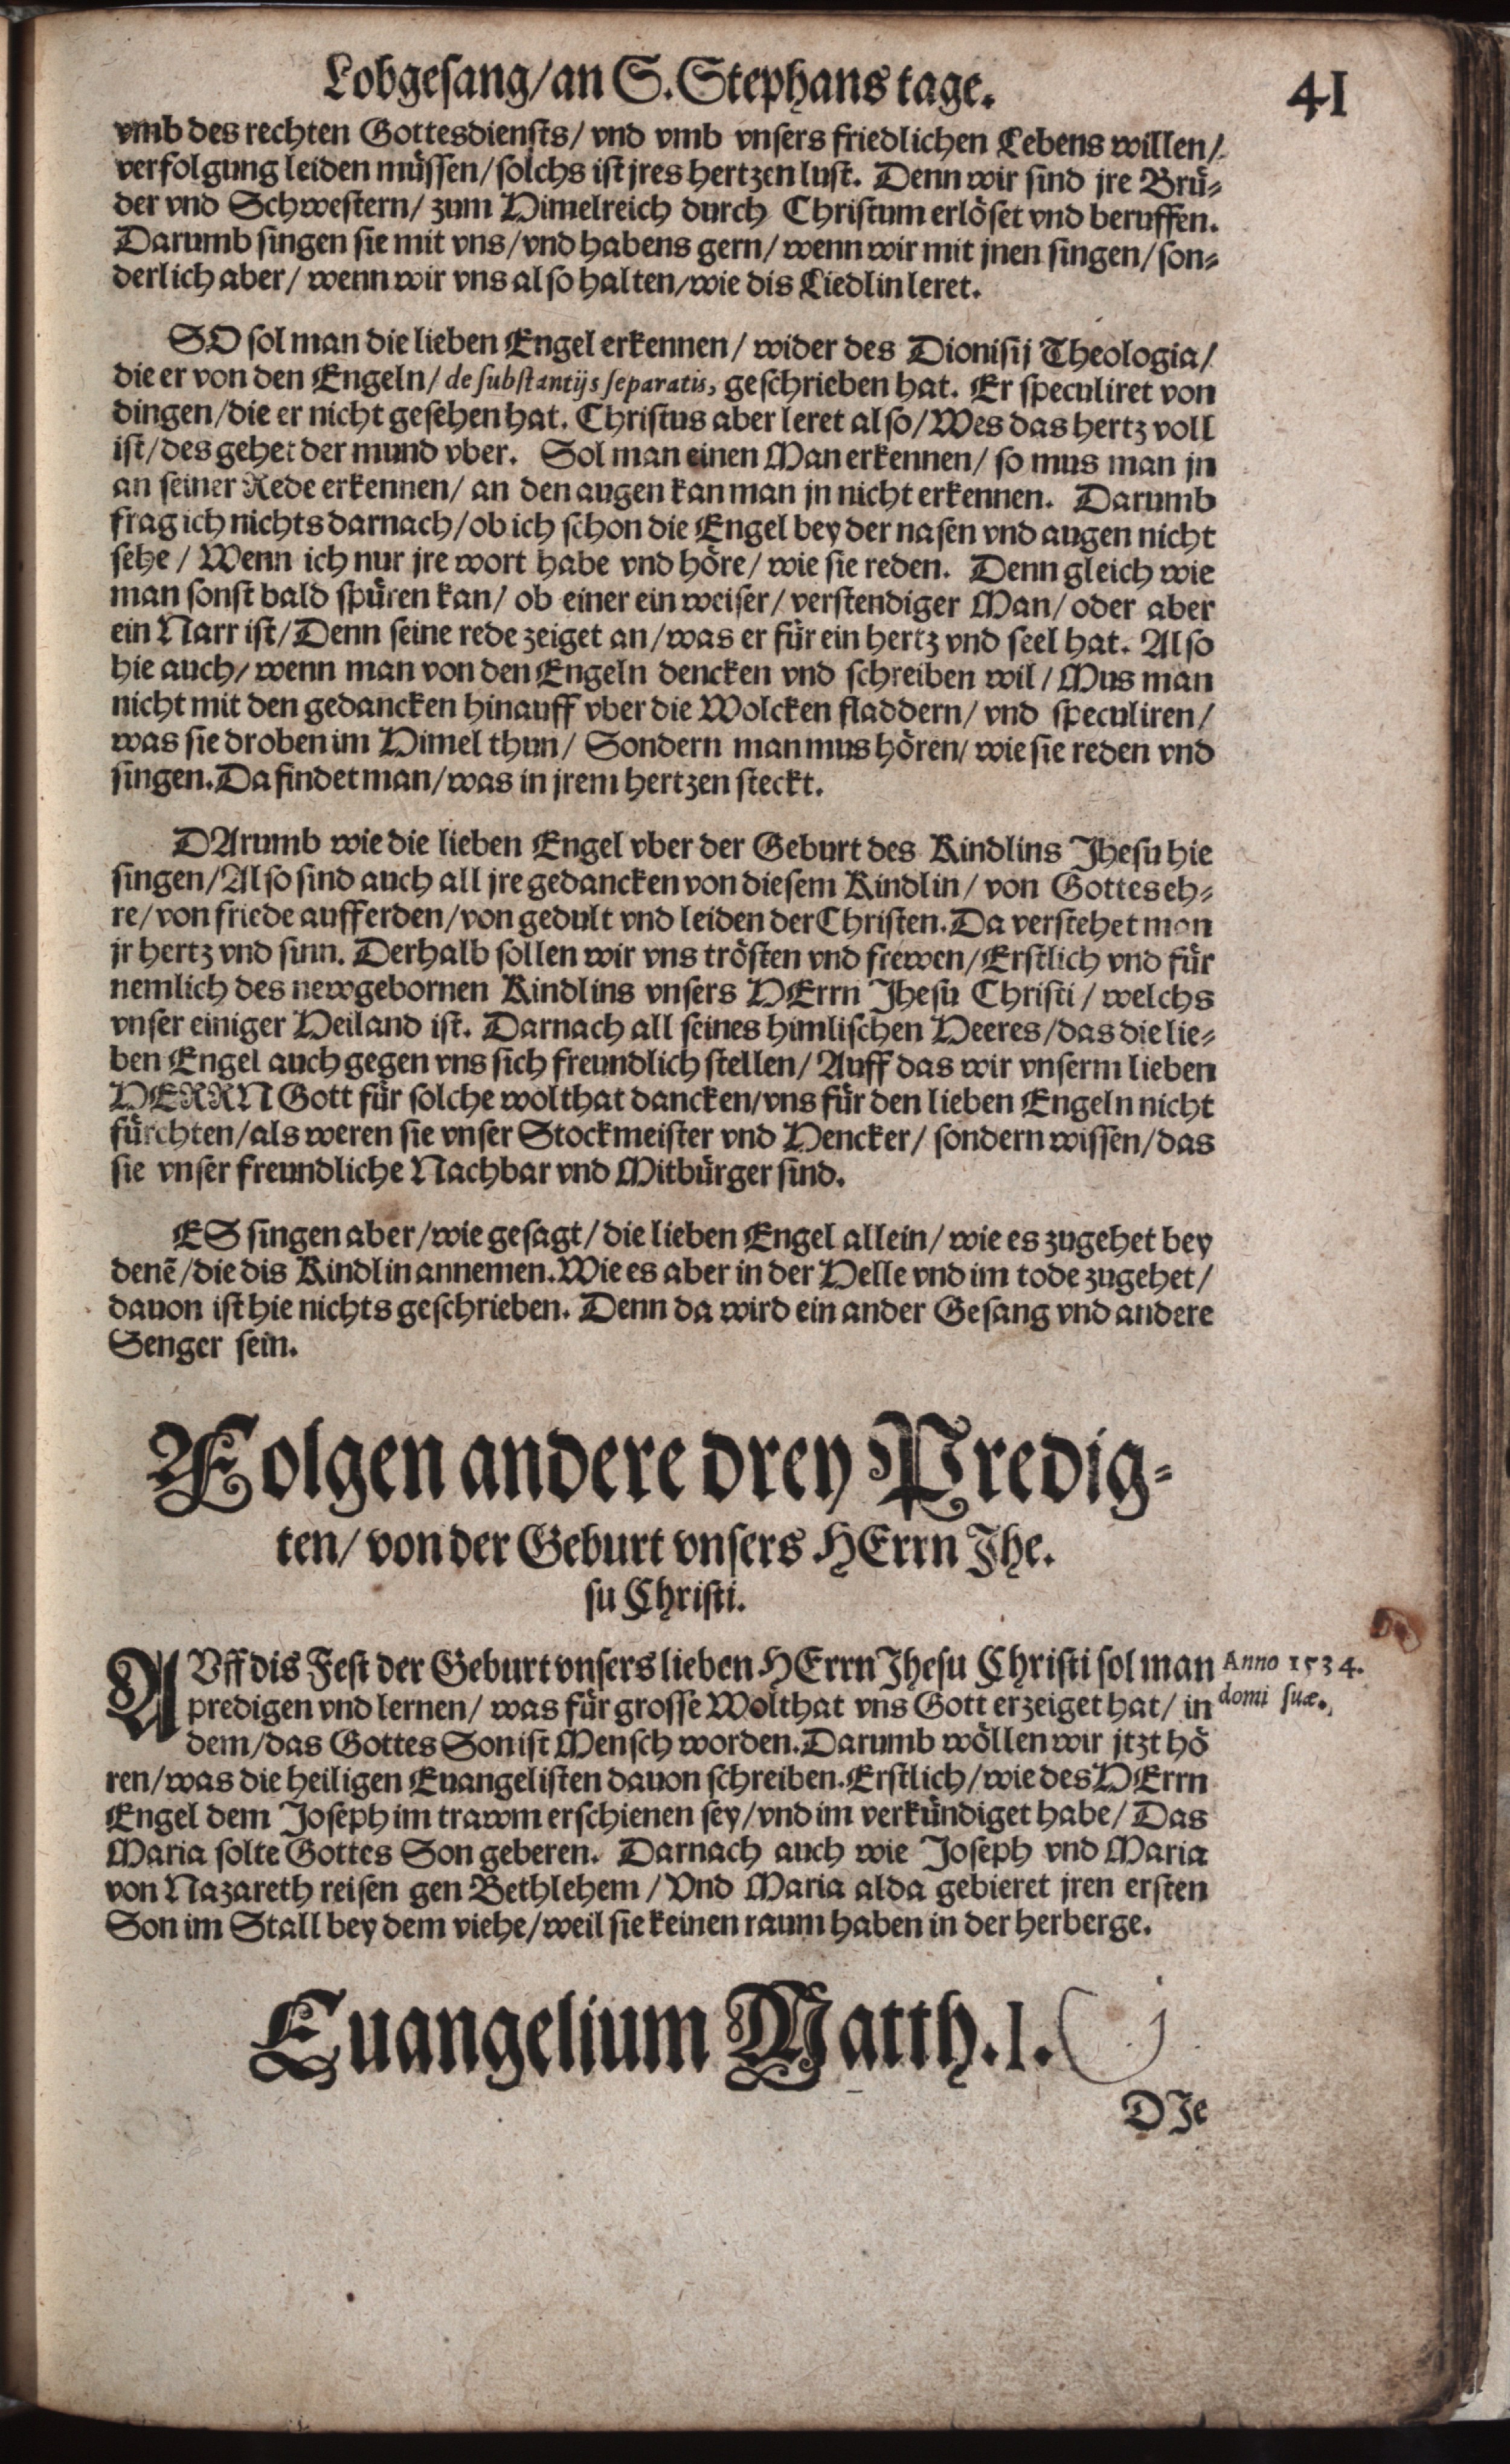 Lobgesang/an S. Stephans tage. 41
vmb des rechten Gottesdiensts/ vnd vmb vnsers friedlichen Lebens willen/
verfolgung leiden müssen/ solchs ist jres hertzen lust. Denn wir sind jre Brü-
der vnd Schwestern/ zum Himelreich durch Christum erlöset vnd beruffen.
Darumb singen sie mit vns/ vnd habens gern/ wenn wir mit jnen singen/ son-
derlich aber/ wenn wir vns also halten/ wie dis Liedlin leret.
SO sol man die lieben Engel erkennen/ wider des Dionisij Theologia/
die er von den Engeln/ de substantijs separatis, geschrieben hat. Er speculiret von
dingen/ die er nicht gesehen hat. Christus aber leret also/ Wes das hertz voll
ist/ des gehet der mund vber. Sol man einen Man erkennen/ so mus man jn
an seiner Rede erkennen/ an den augen kan man jn nicht erkennen. Darumb
frag ich nichts darnach/ ob ich schon die Engel bey der nasen vnd augen nicht
sehe/ Wenn ich nur jre wort habe vnd höre/ wie sie reden. Denn gleich wie
man sonst bald spüren kan/ ob einer ein weiser/ verstendiger Man/ oder aber
ein Narr ist/ Denn seine rede zeiget an/ was er für ein hertz vnd seel hat. Also
hie auch/ wenn man von den Engeln dencken vnd schreiben wil/ Mus man
nicht mit den gedancken hinauff vber die Wolcken fladdern/ vnd speculiren/
was sie droben im Himel thun/ Sondern man mus hören/ wie sie reden vnd
singen. Da findet man/ was in jrem hertzen steckt.
DArumb wie die lieben Engel vber der Geburt des Kindlins Jhesu hie
singen/ Also sind auch all jre gedancken von diesem Kindlin/ von Gottes eh-
re/ von friede auff erden/ von gedult vnd leiden der Christen. Da verstehet man
jr hertz vnd sinn. Derhalb sollen wir vns trösten vnd frewen/ Erstlich vnd für
nemlich des newgebornen Kindlins vnsers HErrn Jhesu Christi/ welchs
vnser einiger Heiland ist. Darnach all seines himlischen Heeres/ das die lie-
ben Engel auch gegen vns sich freundlich stellen/ Auff das wir vnserm lieben
HERRN Gott für solche wolthat dancken/ vns für den lieben Engeln nicht
fürchten/ als weren sie vnser Stockmeister vnd Hencker/ sondern wissen/ das
sie vnser freundliche Nachbar vnd Mitbürger sind.
ES singen aber/ wie gesagt/ die lieben Engel allein/ wie es zugehet bey
denē/ die dis Kindlin annemen. Wie es aber in der Helle vnd im tode zugehet/
dauon ist hie nichts geschrieben. Denn da wird ein ander Gesang vnd andere
Senger sein.
Folgen andere drey Predig-
ten/ von der Geburt vnsers HErrn Jhe.
su Christi.
AVff dis Fest der Geburt vnsers lieben HErrn Jhesu Christi sol man Anno 1534.
predigen vnd lernen/ was für grosse Wolthat vns Gott erzeiget hat/ in domi suæ.
dem/ das Gottes Son ist Mensch worden. Darumb wöllen wir jtzt hö
ren/ was die heiligen Euangelisten dauon schreiben. Erstlich/ wie des HErrn
Engel dem Joseph im trawm erschienen sey/ vnd im verkündiget habe/ Das
Maria solte Gottes Son geberen. Darnach auch wie Joseph vnd Maria
von Nazareth reisen gen Bethlehem/ Vnd Maria alda gebieret jren ersten
Son im Stall bey dem viehe/ weil sie keinen raum haben in der herberge.
Euangelium Matth. 1.
DJe